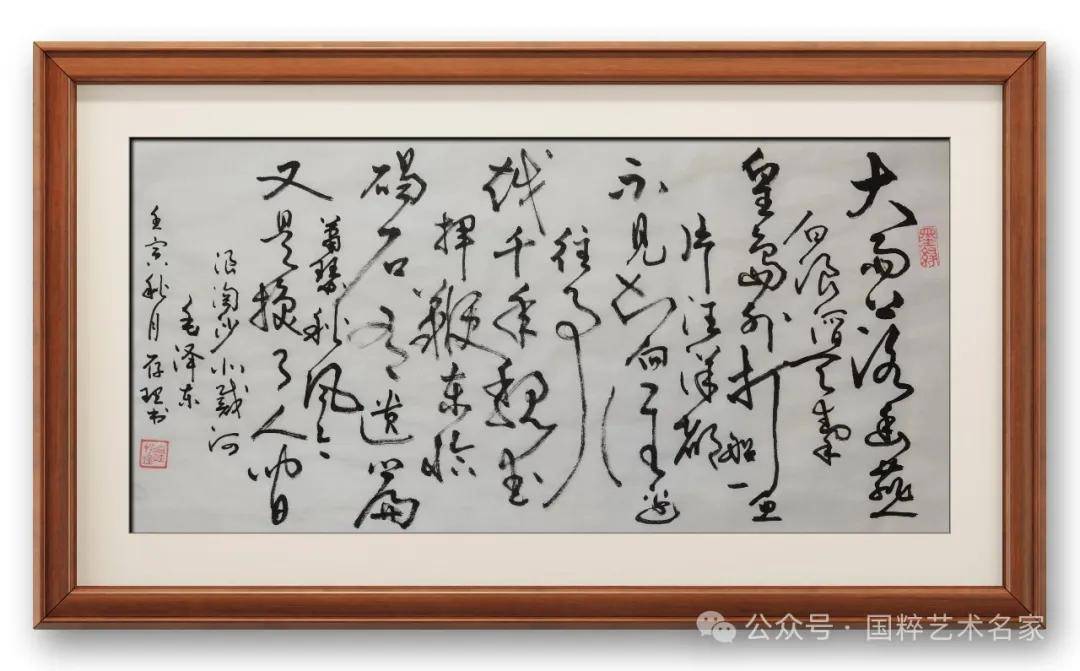 墨緣
大雨落幽燕
白浪滔天秦
皇島外打魚船一
片汪洋都
不見知向誰邊
往事
越千年魏武
挥鞭东临
碣石有遗篇
萧瑟秋风今
又是换了人间
浪淘沙北戴河
毛泽东
壬寅秋月存书
公众号 · 国粹艺术名家